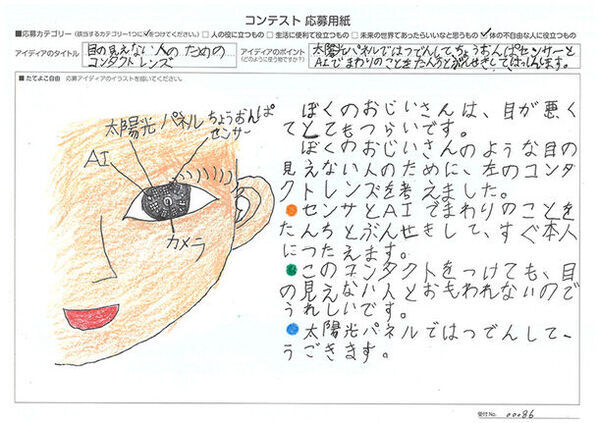 コンテスト 応募用紙
■応募カテゴリー(該当するカテゴリー1つに✓をつけてください。) □ 人の役に立つもの □ 生活に便利で役立つもの □ 未来の世界であったらいいなと思うもの ✓体の不自由な人に役立つもの
アイディアのタイトル
目の見えない人のための
コンタクトレンズ
アイディアのポイント
(どのように使う物ですか?)
太陽光パネルではつでんしてちょうおんぱセンサーと
AIでまわりのことをたんちとぶんせきしてはっしんします。
■たてよこ自由 応募アイディアのイラストを描いてください。
太陽光パネル
ちょうおんぱ
センサー
AI
カメラ
ぼくのおじいさんは、目が悪く
てとてもつらいです。
ぼくのおじいさんのような目の
見えない人のために、左のコンタ
クトレンズを考えました。
センサとAIでまわりのことを
たんちとぶんせきして、すぐ本人
につたえます。
このコンタクトをつけても、目
の見えない人とおもわれないので
うれしいです。
太陽光パネルではつでんして、
うごきます。
受付No. 00086